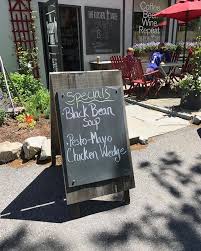 Specials
Black Bean
Soup
• Pesto-Mayo
Chicken Wedge
Coffee
Beer
Wine
Repeat